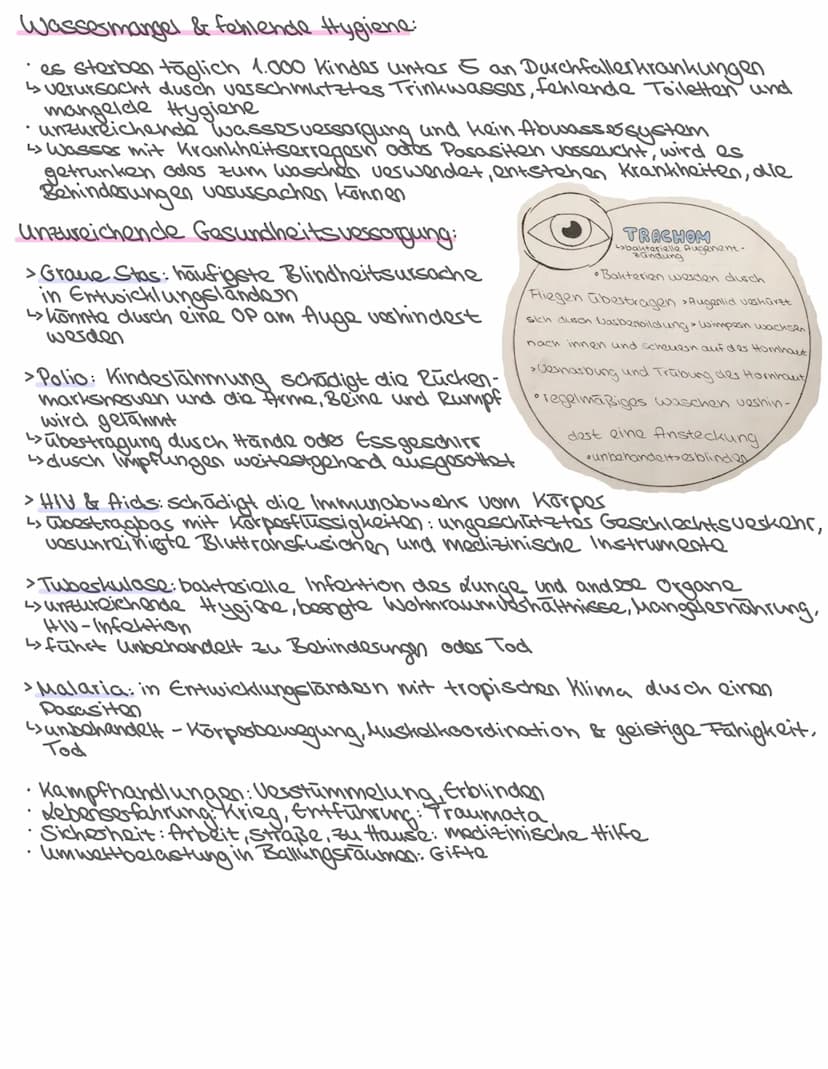 Wassermangel & fehlende Hygiene:
· es sterben täglich 1.000 Kinder unter 5 an Durchfallerkrankungen
↳ verursacht durch verschmutztes Trinkwasser, fehlende Toiletten und
mangelde Hygiene
· unzureichende Wasserversorgung und kein Abwassersystem
↳ Wasser mit Krankheitserregern oder Parasiten verseucht, wird es
getrunken oder zum Waschen verwendet, entstehen Krankheiten, die
Behinderungen verursachen können
Unzureichende Gesundheitsversorgung:
> Graue Star: häufigste Blindheitsursache
in Entwicklungsländern
↳ könnte durch eine OP am Auge verhindert
werden
> Polio: Kinderlähmung schädigt die Rücken-
marksnerven und die Arme, Beine und Rumpf
wird gelähmt
↳ übertragung durch Hände oder Essgeschirr
↳ durch Impfungen weitestgehend ausgerottet
TRACHOM
↳ bakterielle Augenent-
zündung
• Bakterien werden durch
Fliegen übertragen > Augenlid verkürzt
sich durch Narbenbildung > Wimpern wachsen
nach innen und scheuern auf der Hornhaut
> Vernarbung und Trübung der Hornhaut
• regelmäßiges waschen verhin-
dert eine Ansteckung
• unbehandelt > erblinden
> HIV & Aids: schädigt die Immunabwehr vom Körper
↳ übertragbar mit Körperflüssigkeiten: ungeschütztes Geschlechtsverkehr,
verunreinigte Bluttransfusionen und medizinische Instrumente
> Tuberkulose: bakterielle Infektion der Lunge und andere Organe
↳ unzureichende Hygiene, beengte Wohnraumverhältnisse, Mangelernährung,
HIV-Infektion
↳ führt unbehandelt zu Behinderungen oder Tod
> Malaria: in Entwicklungsländern mit tropischen Klima durch einen
Parasiten
↳ unbehandelt - Körperbewegung, Muskelkoordination & geistige Fähigkeit,
Tod
· Kampfhandlungen: Verstümmelung, Erblinden
· Lebenserfahrung: Krieg, Entführung: Traumata
· Sicherheit: Arbeit, Straße, zu Hause: medizinische Hilfe
· Umweltbelastung in Ballungsräumen: Gifte